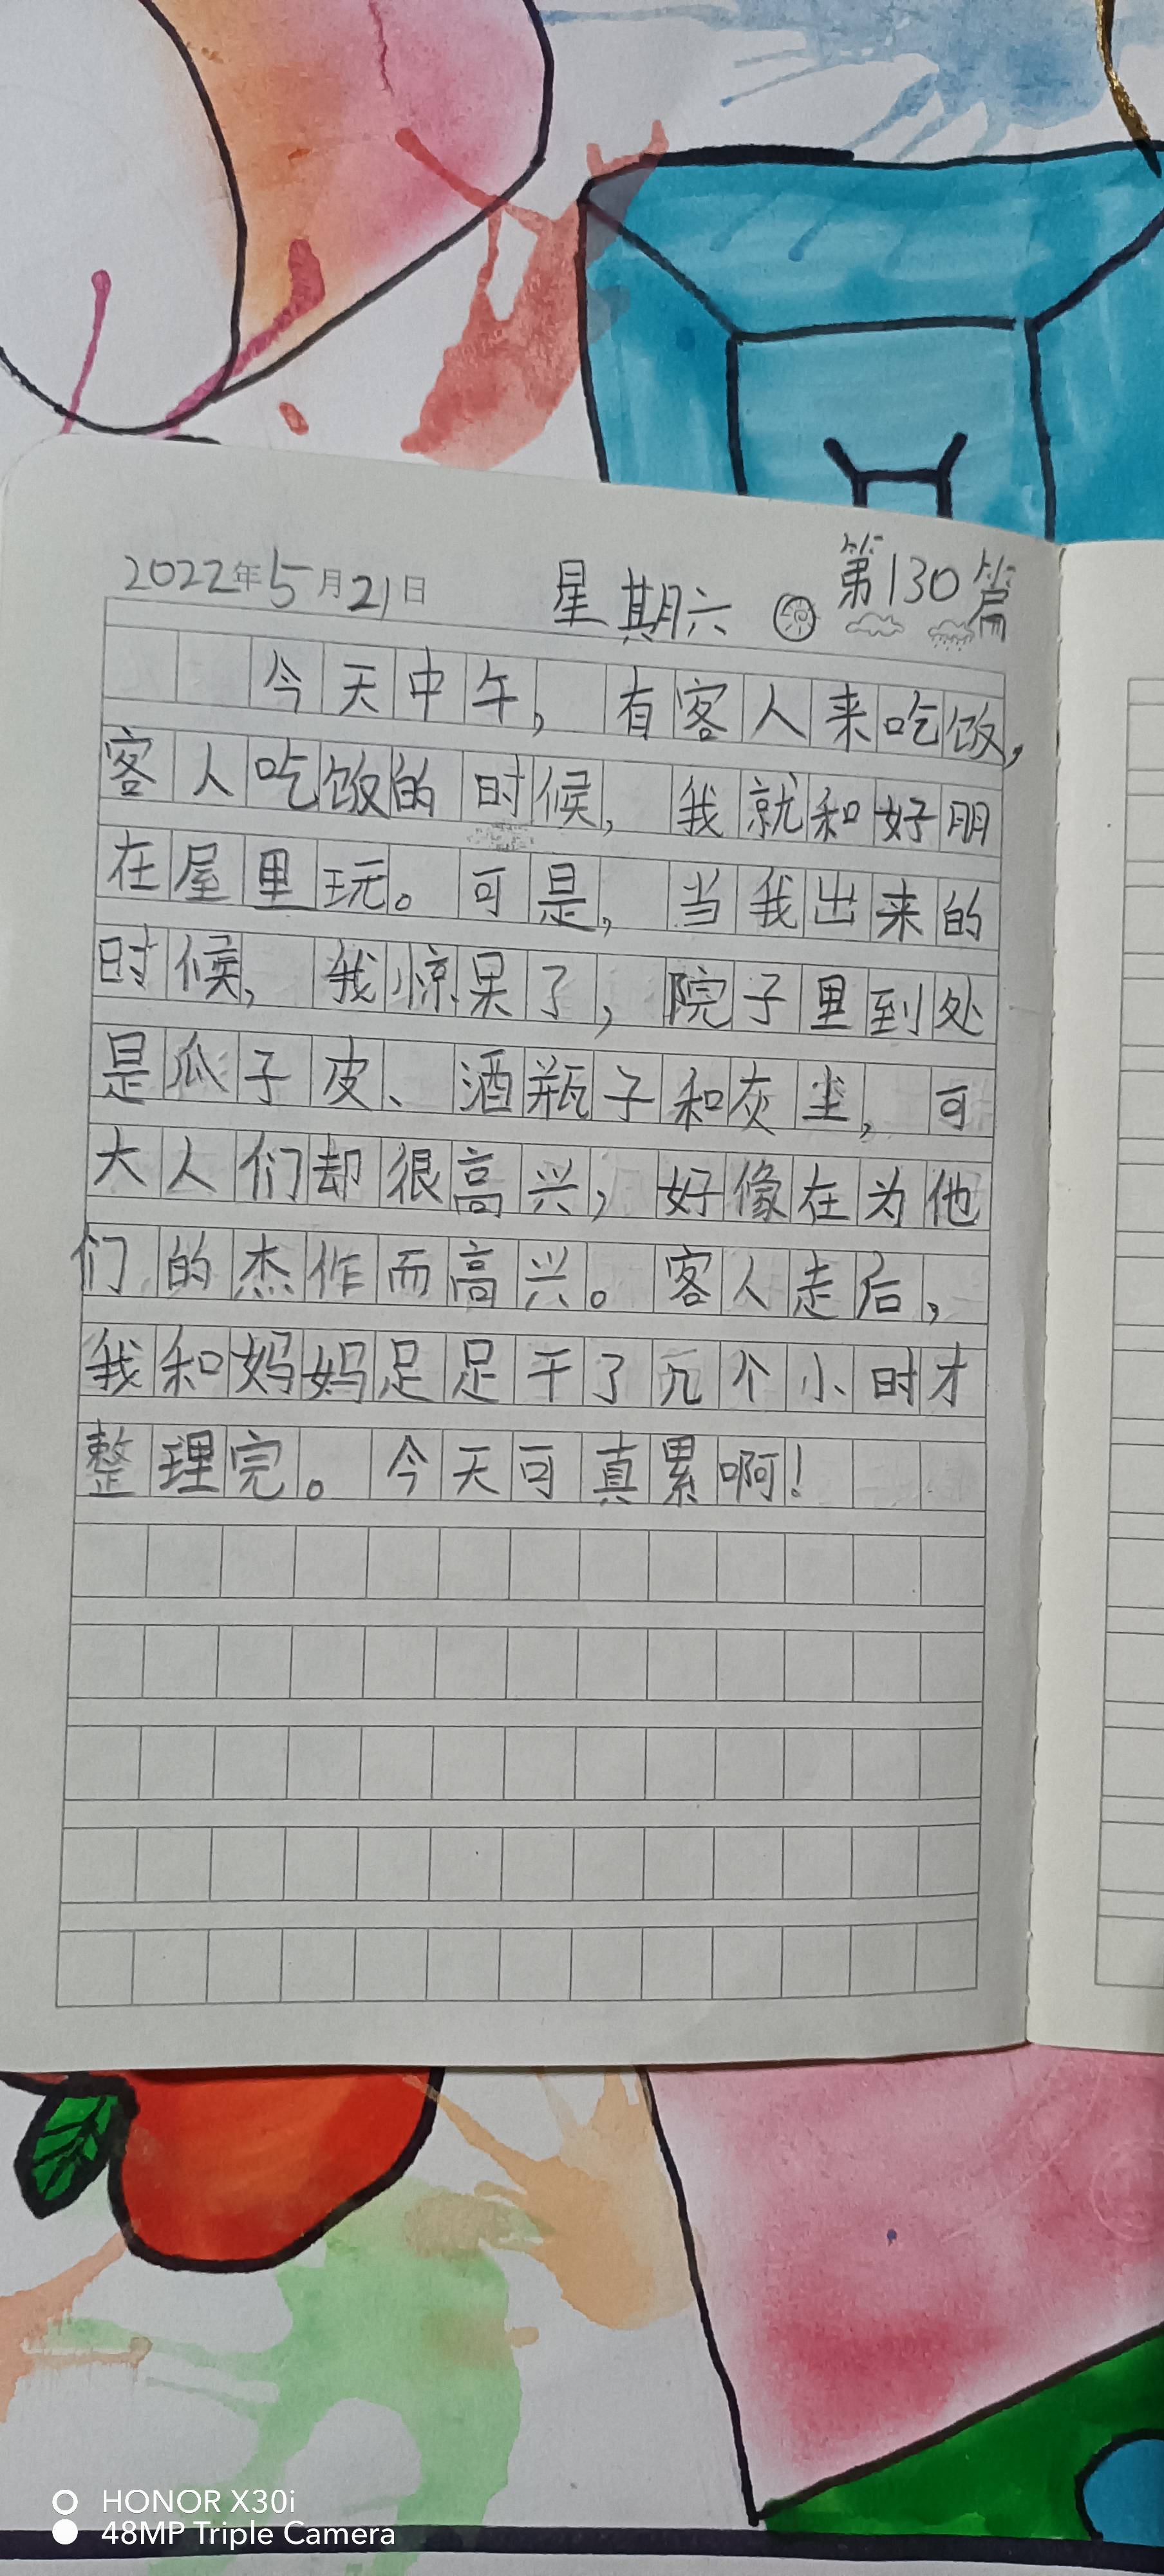 2022年5月21日 星期六 第130篇
今天中午，有客人来吃饭，
客人吃饭的时候，我就和好朋
在屋里玩。可是，当我出来的
时候，我惊呆了，院子里到处
是瓜子皮、酒瓶子和灰尘，可
大人们却很高兴，好像在为他
们的杰作而高兴。客人走后，
我和妈妈足足干了几个小时才
整理完。今天可真累啊！
HONOR X30i
48MP Triple Camera